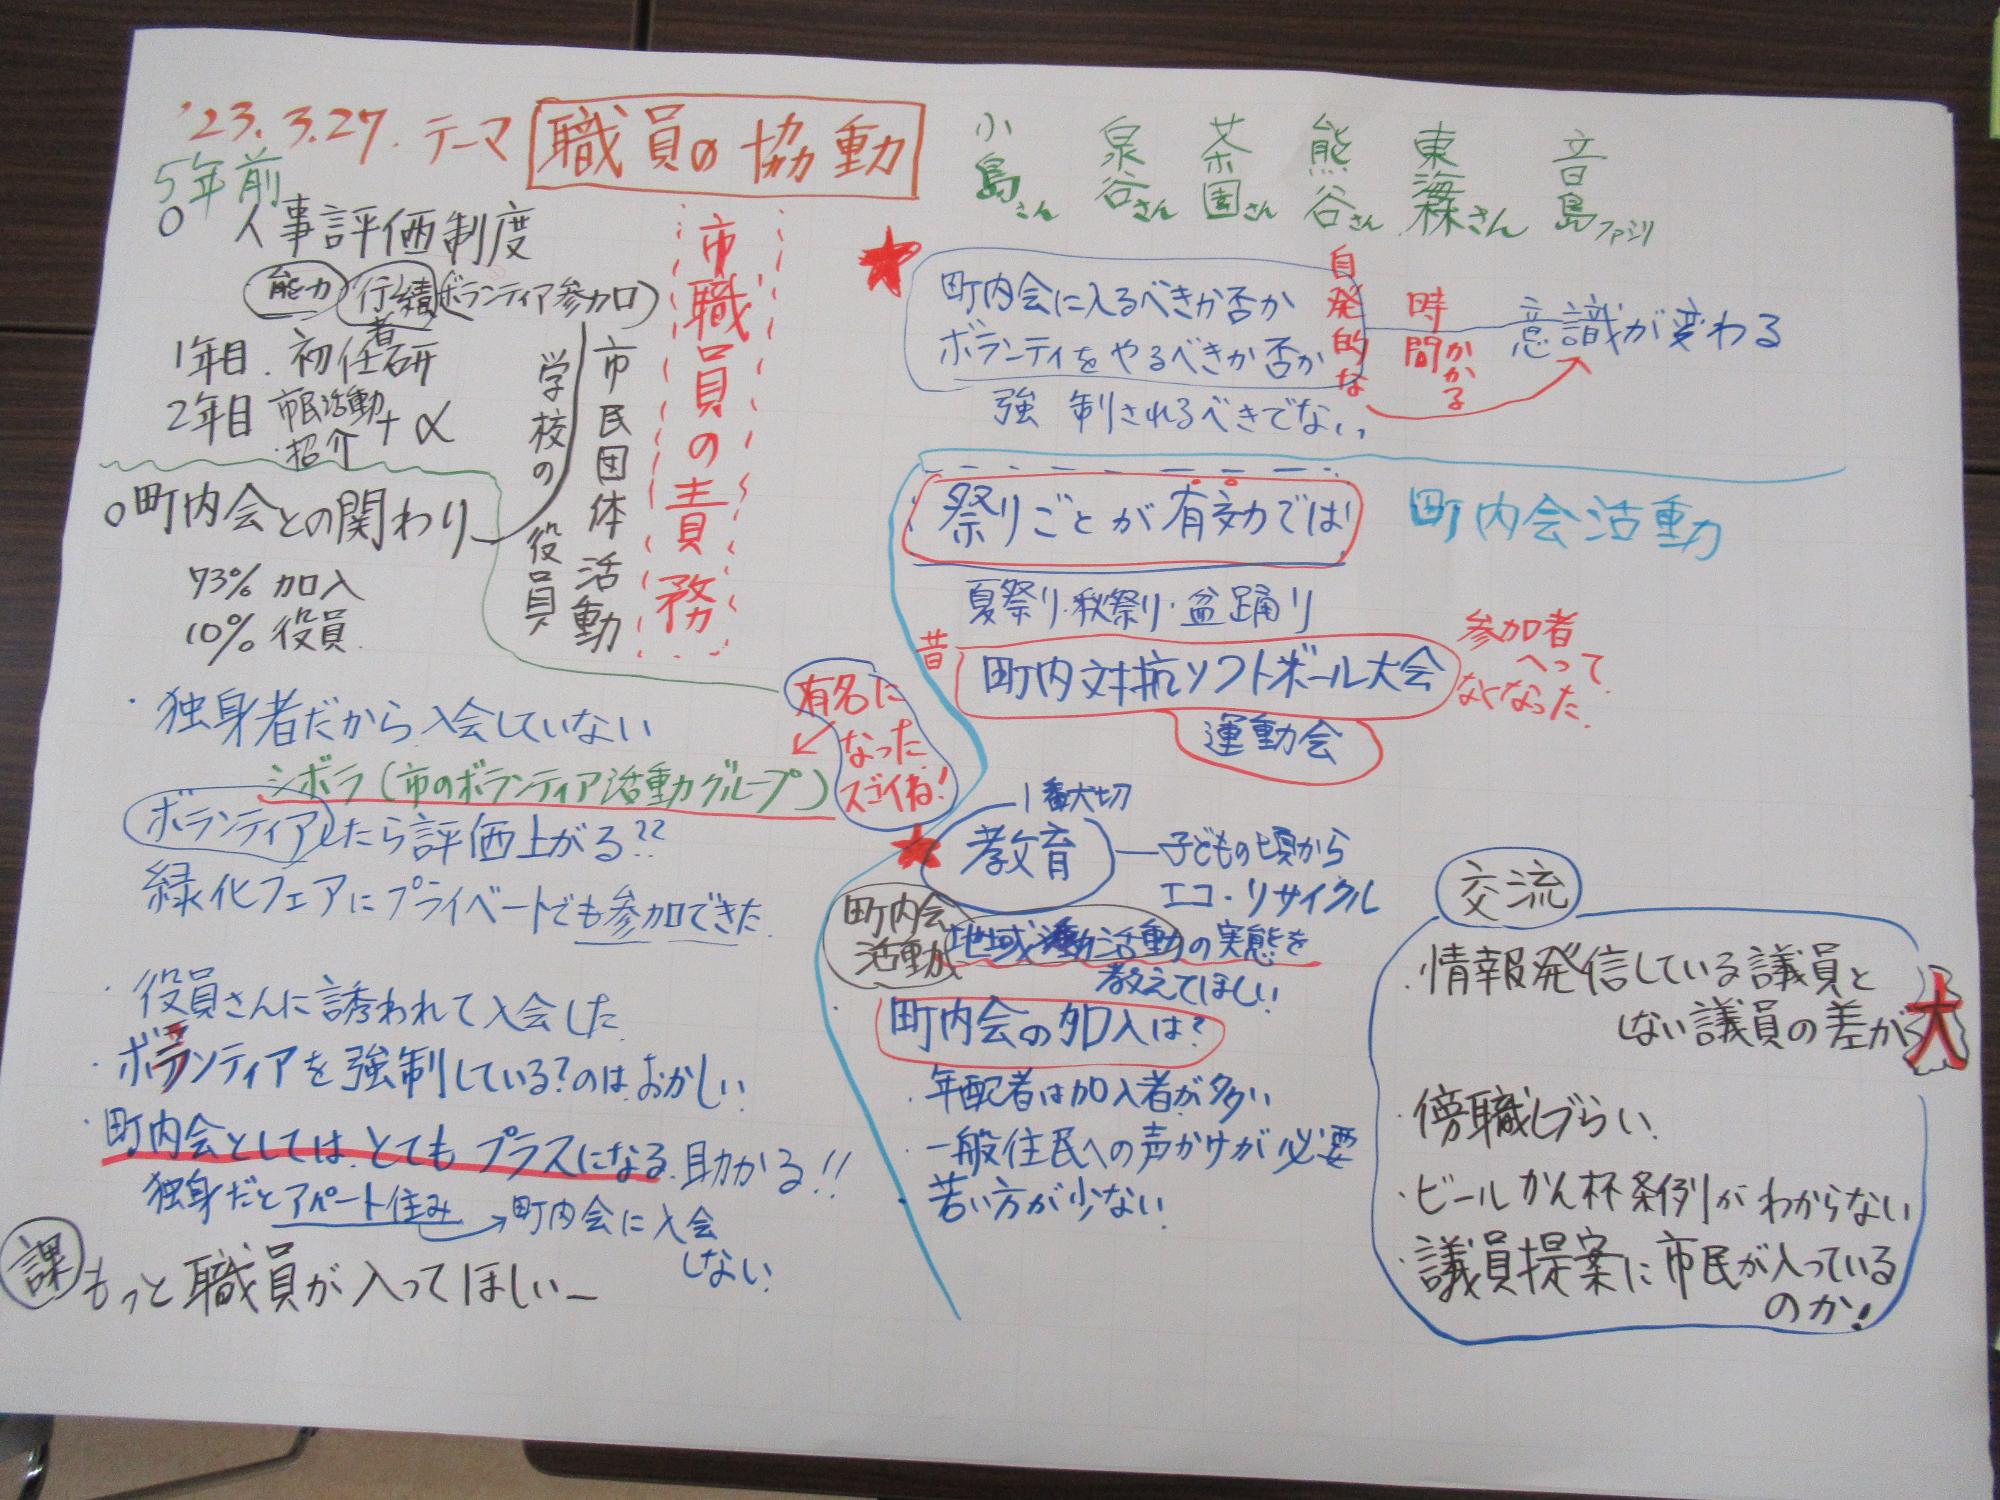 '23.3.27. テーマ 職員の協動
小島さん 泉谷さん 茶園さん 熊谷さん 東海林さん 音島ファシリ
5年前
○ 人事評価制度
能力 行績(ボランティア参加)
1年目 初任者研
2年目 市民活動紹介 +α
学校の役員
市民団体活動
市職員の責務
○町内会との関わり
73% 加入
10% 役員
・独身者だから入会していない
シボラ(市のボランティア活動グループ)
有名に
なった
スゴイね!
ボランティアしたら評価上がる??
緑化フェアにプライベートでも参加できた
・役員さんに誘われて入会した
・ボランティアを強制している?のはおかしい
・町内会としては、とてもプラスになる 助かる!!
独身だとアパート住み→町内会に入会
しない
課 もっと職員が入ってほしい
町内会に入るべきか否か
ボランティをやるべきか否か
自発的な
時間かかる
意識が変わる
強制されるべきでない
祭りごとが有効では
町内会活動
夏祭り・秋祭り・盆踊り
昔
町内対抗ソフトボール大会
参加者
へって
なくなった
運動会
1番大切
教育
子どもの頃から
エコ・リサイクル
町内会
活動
地域活動の実態を
教えてほしい
町内会の加入は?
・年配者は加入者が多い
・一般住民への声かけが必要
・若い方が少ない
交流
・情報発信している議員と
しない議員の差が大
・傍職しづらい
・ビールかん杯条例がわからない
・議員提案に市民が入っている
のか!